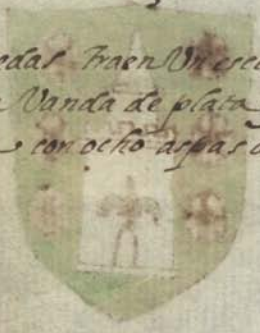 edas Traen Un esc
Vanda de plata
con ocho aspas d